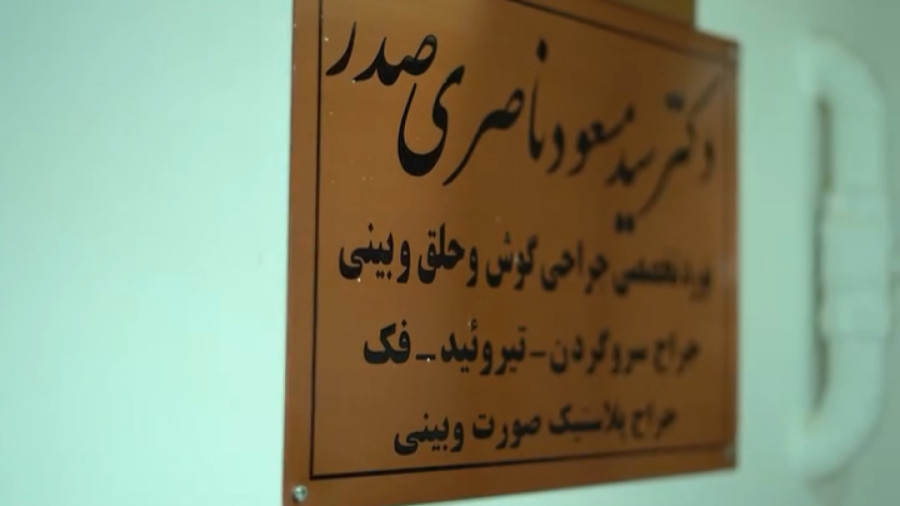 دکتر سید مسعود ناصری صدر
بورد تخصصی جراحی گوش و حلق و بینی
جراح سروگردن - تیروئید - فک
جراح پلاستیک صورت و بینی